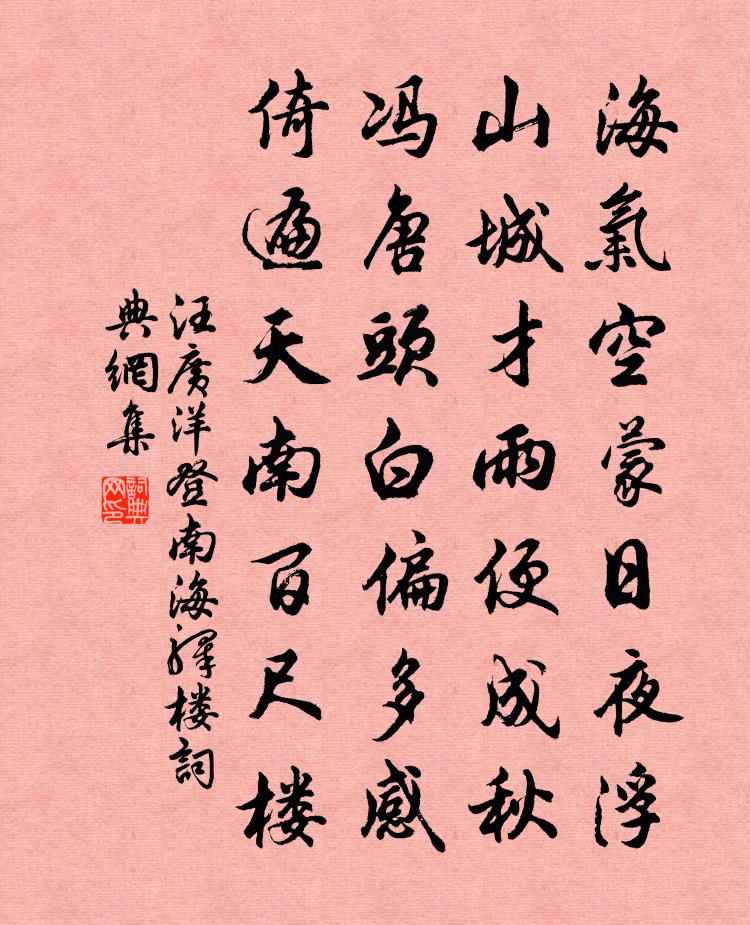 海氣空蒙日夜浮
山城才雨便成秋
冯唐頭白偏多感
倚遍天南百尺楼
汪廣洋登南海驛楼詞
典網集
詞典
网印